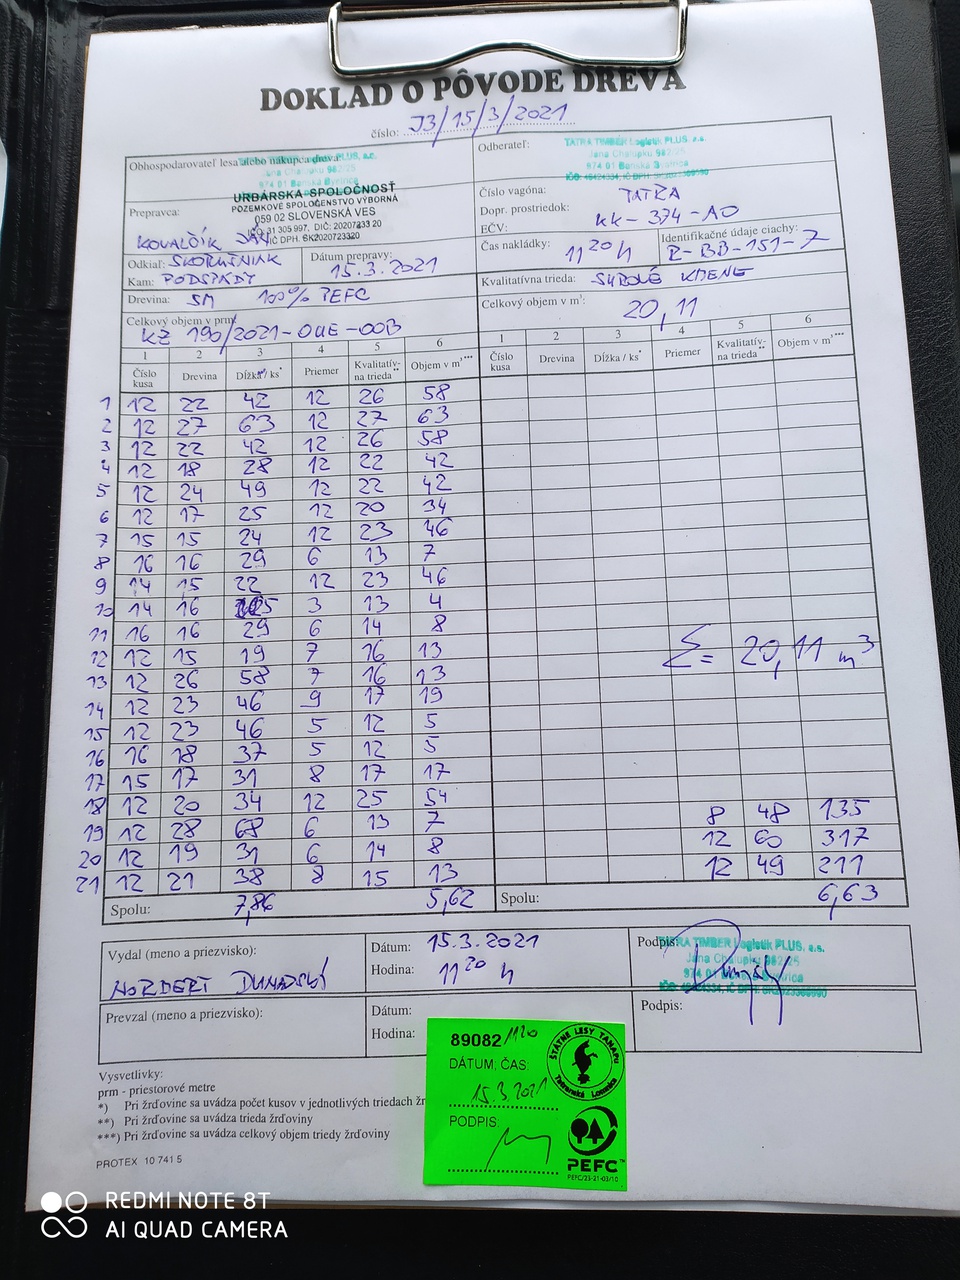 DOKLAD O PÔVODE DREVA
číslo: J3/15/3/2021
Obhospodarovateľ lesa alebo nákupca dreva:
URBÁRSKA SPOLOČNOSŤ
POZEMKOVÉ SPOLOČENSTVO VÝBORNÁ
059 02 SLOVENSKÁ VES
IČO: 31 305 997, DIČ: 2020723320
IČ DPH. SK2020723320
Odberateľ:
TATRA TIMBER Logistik PLUS, s.s.
Jána Chalupku 982/25
974 01 Banská Bystrica
Prepravca:
KOVALČÍK JÁN
Číslo vagóna: TATRA
Dopr. prostriedok:
EČV: KK-374-AO
Odkiaľ: SKORUŠINIAK
Kam: PODSPÁDY
Dátum prepravy:
15.3.2021
Čas nakládky: 11 20 h
Identifikačné údaje ciachy:
R-BB-151-7
Drevina: SM 100% PEFC
Kvalitatívna trieda: SUROVÉ KMENE
Celkový objem v prm:
KZ 190/2021-OUE-OOB
Celkový objem v m³: 20,11
1 2 3 4 5 6 1 2 3 4 5 6
Číslo kusa Drevina Dĺžka / ks* Priemer Kvalitatívna trieda** Objem v m³*** Číslo kusa Drevina Dĺžka / ks* Priemer Kvalitatívna trieda** Objem v m³***
1 12 22 42 12 26 58
2 12 27 63 12 27 63
3 12 22 42 12 26 58
4 12 18 28 12 22 42
5 12 24 49 12 22 42
6 12 17 25 12 20 34
7 15 15 24 12 23 46
8 16 16 29 6 13 7
9 14 15 22 12 23 46
10 14 16 3 13 4
11 16 16 29 6 14 8
12 12 15 19 7 16 13
Σ= 20,11 m³
13 12 26 58 7 16 13
14 12 23 46 9 17 19
15 12 23 46 5 12 5
16 16 18 37 5 12 5
17 15 17 31 8 17 17
18 12 20 34 12 25 54 8 48 135
19 12 28 68 6 13 7 12 60 317
20 12 19 31 6 14 8 12 49 211
21 12 21 38 8 15 13
Spolu: 7,86 5,62 Spolu: 6,63
Vydal (meno a priezvisko):
NORBERT DUNAJSKÝ
Dátum: 15.3.2021
Hodina: 11 20 h
Podpis:
TATRA TIMBER Logistik PLUS, s.s.
Jána Chalupku 982/25
974 01 Banská Bystrica
Prevzal (meno a priezvisko):
Dátum:
Hodina:
Podpis:
Vysvetlivky:
prm - priestorové metre
*) Pri žrďovine sa uvádza počet kusov v jednotlivých triedach žr
**) Pri žrďovine sa uvádza trieda žrďoviny
***) Pri žrďovine sa uvádza celkový objem triedy žrďoviny
PROTEX 10 741 5
89082 1120
DÁTUM, ČAS:
15.3.2021
PODPIS:
ŠTÁTNE LESY TANAPU
Tatranská Lomnica
PEFC™
PEFC/23-21-03/10
REDMI NOTE 8T
AI QUAD CAMERA